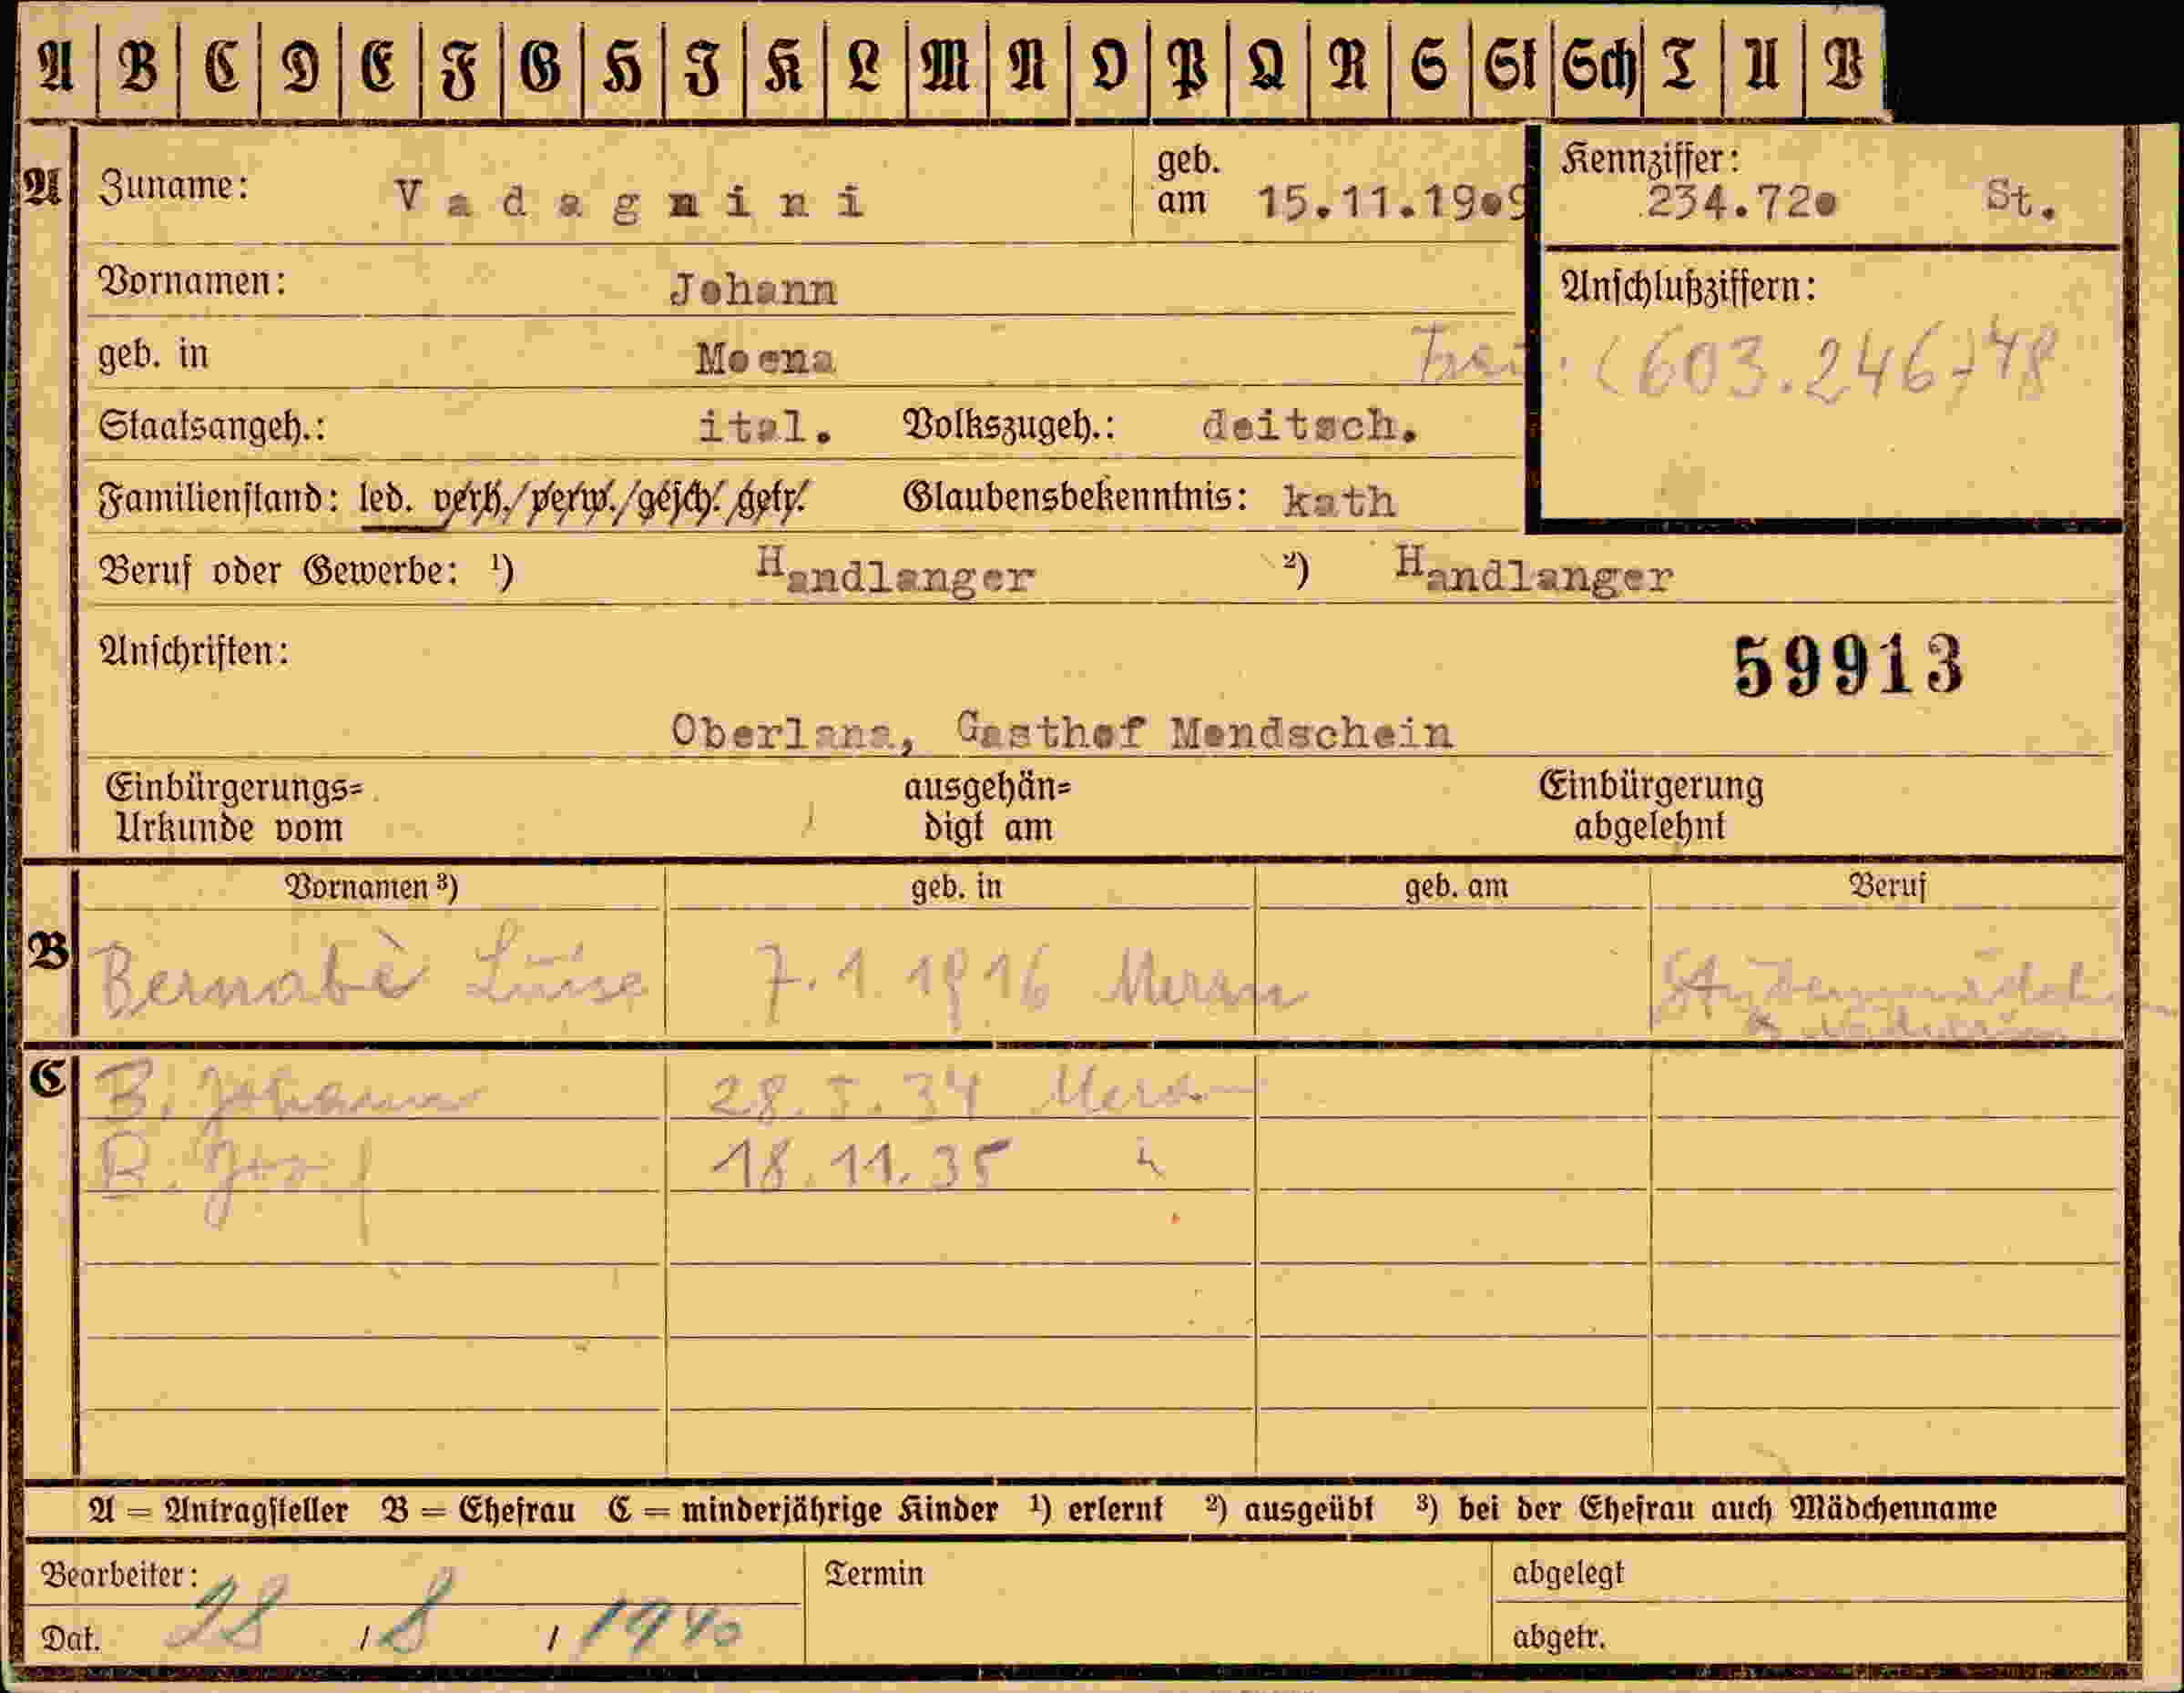 A B C D E F G H I K L M N O P Q R S St Sch T U V
A Zuname: Vadagnini geb. am 15.11.1909 Kennziffer: 234.720 St.
Vornamen: Johann Anschlußziffern:
geb. in Moena (603.246) 48
Staatsangeh.: ital. Volkszugeh.: deitsch.
Familienstand: led. verh./verw./gesch./getr. Glaubensbekenntnis: kath
Beruf oder Gewerbe: ¹) Handlanger ²) Handlanger
Anschriften: 59913
Oberlana, Gasthof Mondschein
Einbürgerungs= ausgehän= Einbürgerung
Urkunde vom digt am abgelehnt
Vornamen ³) geb. in geb. am Beruf
B Bernabè Luise 7.1.1916 Meran
C B. Johann 28.5.34 Meran
B. Josef 18.11.35 "
A = Antragsteller B = Ehefrau C = minderjährige Kinder ¹) erlernt ²) ausgeübt ³) bei der Ehefrau auch Mädchenname
Bearbeiter: Termin abgelegt
Dat. 28 / 8 / 1940 abgetr.